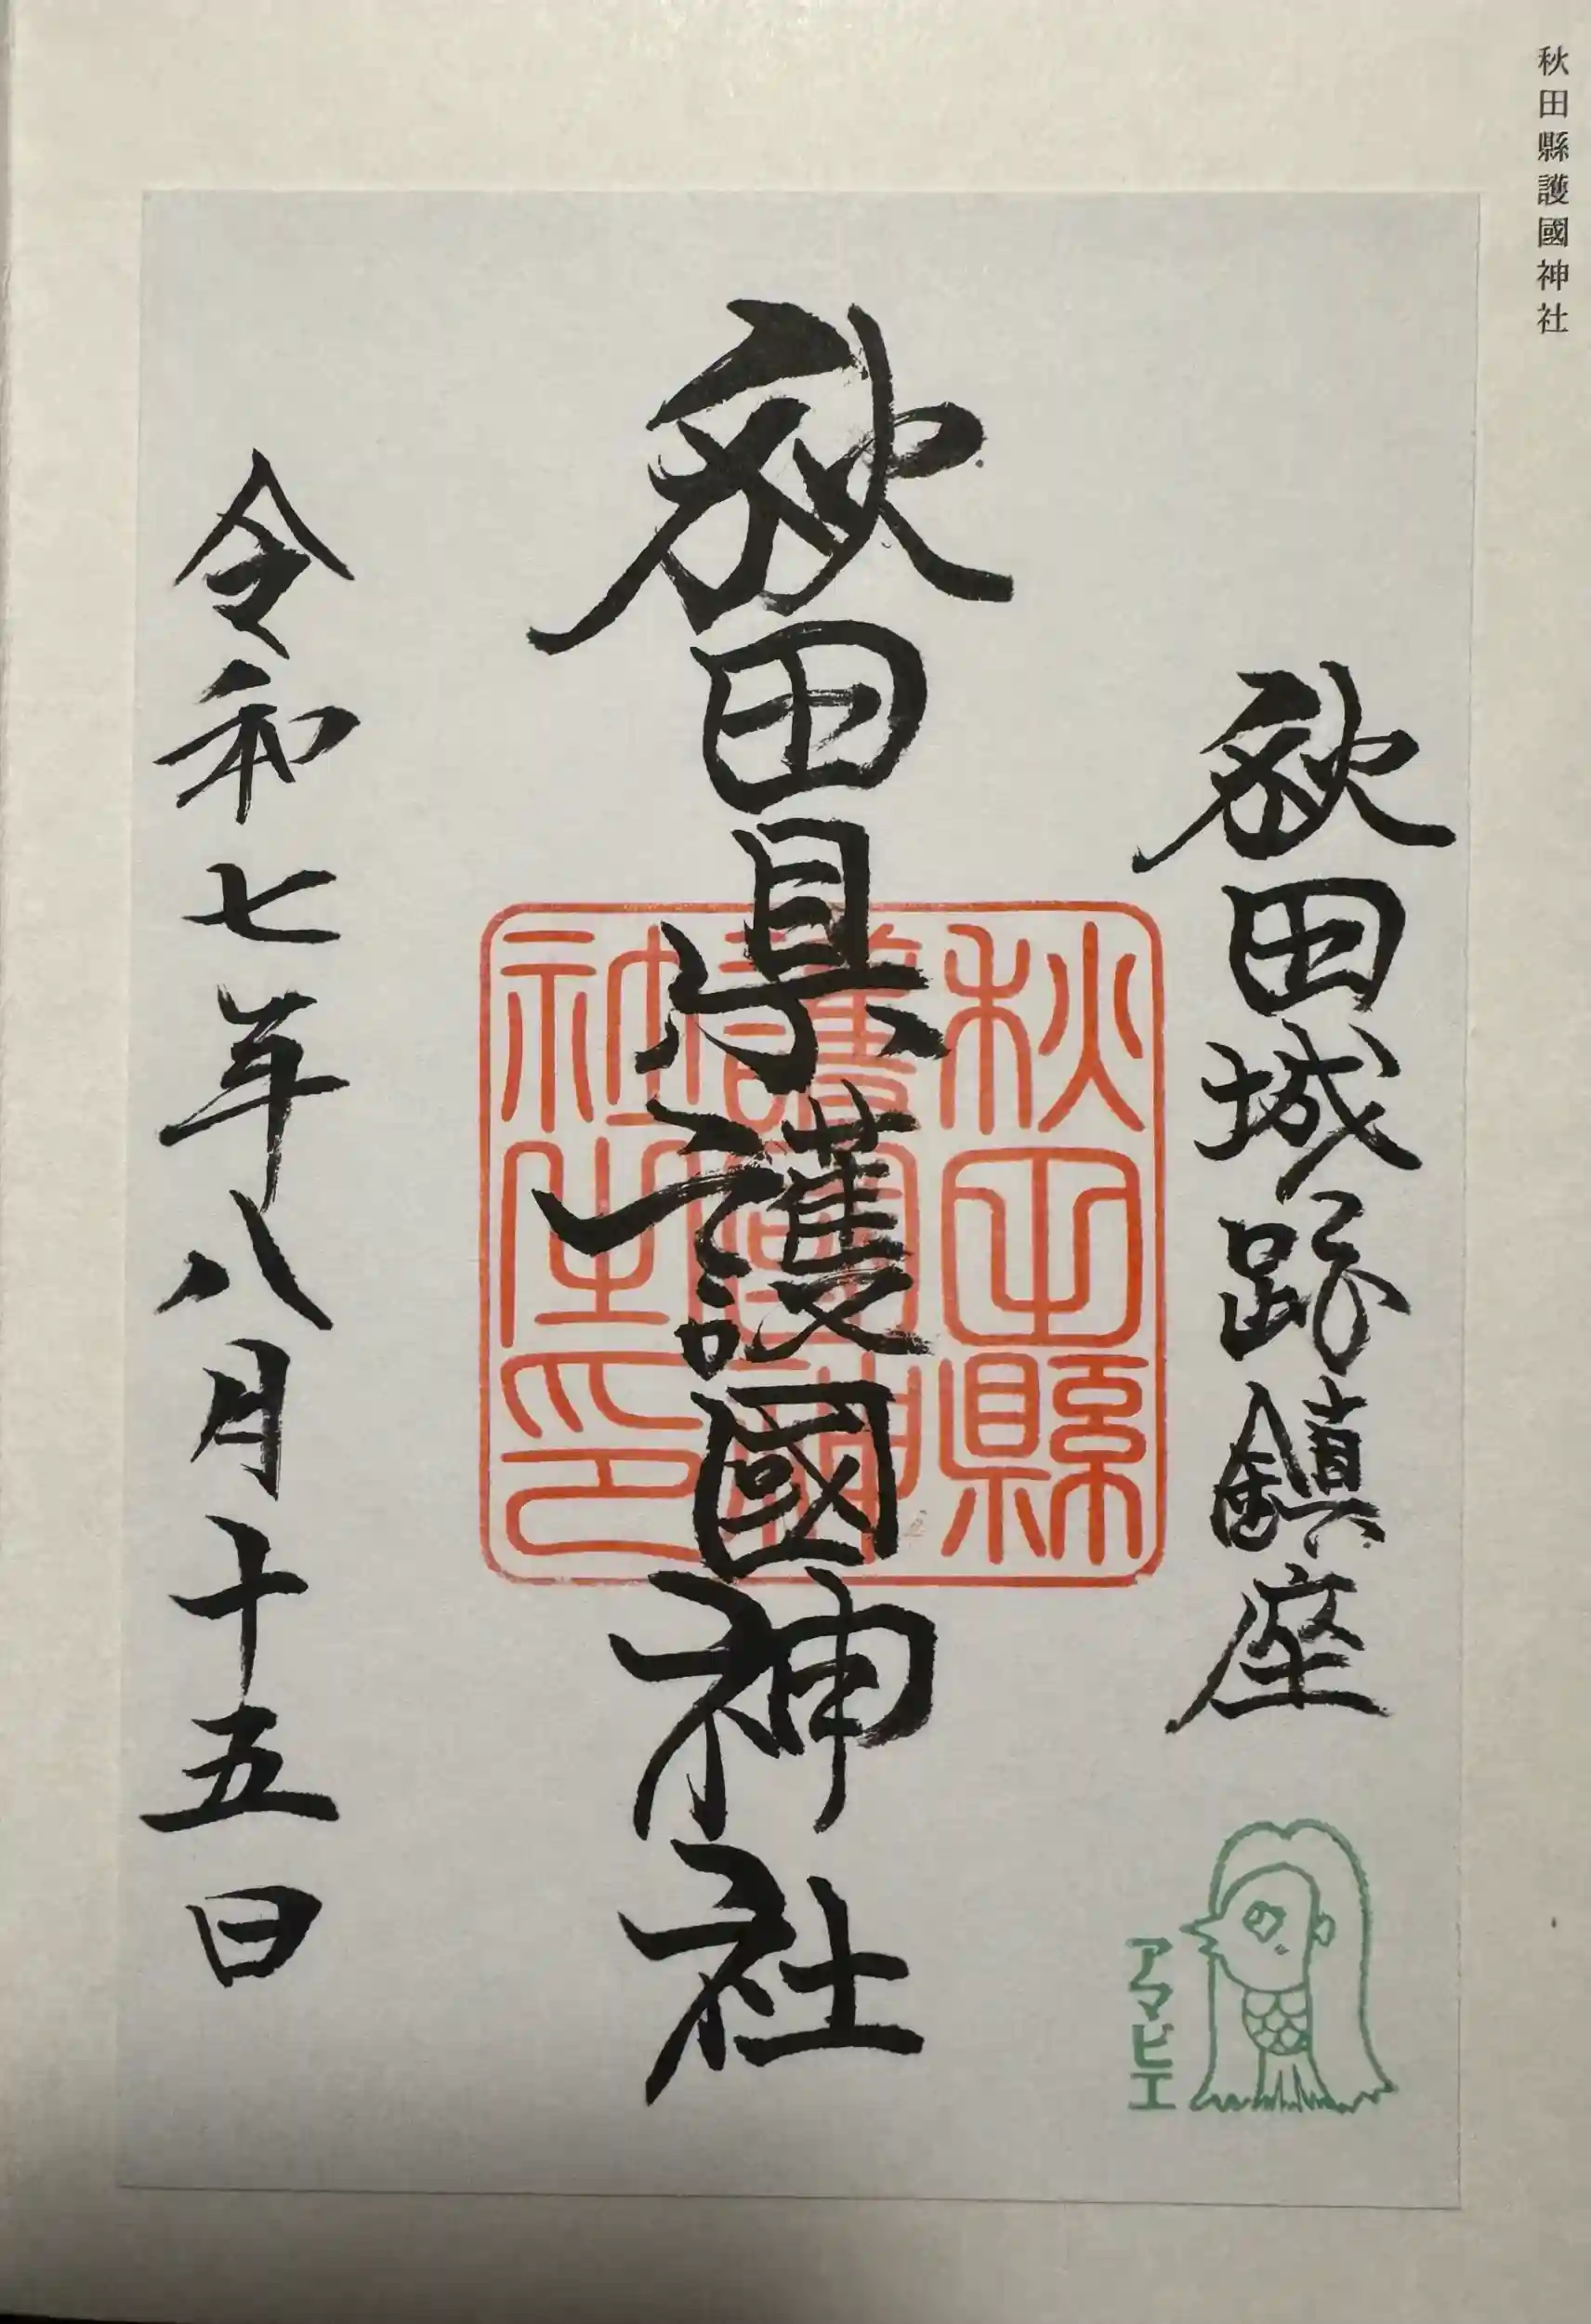 秋田縣護國神社
秋田城跡鎮座
秋田県護國神社
令和七年八月十五日
秋田縣
護國神
社之印
アマビエ